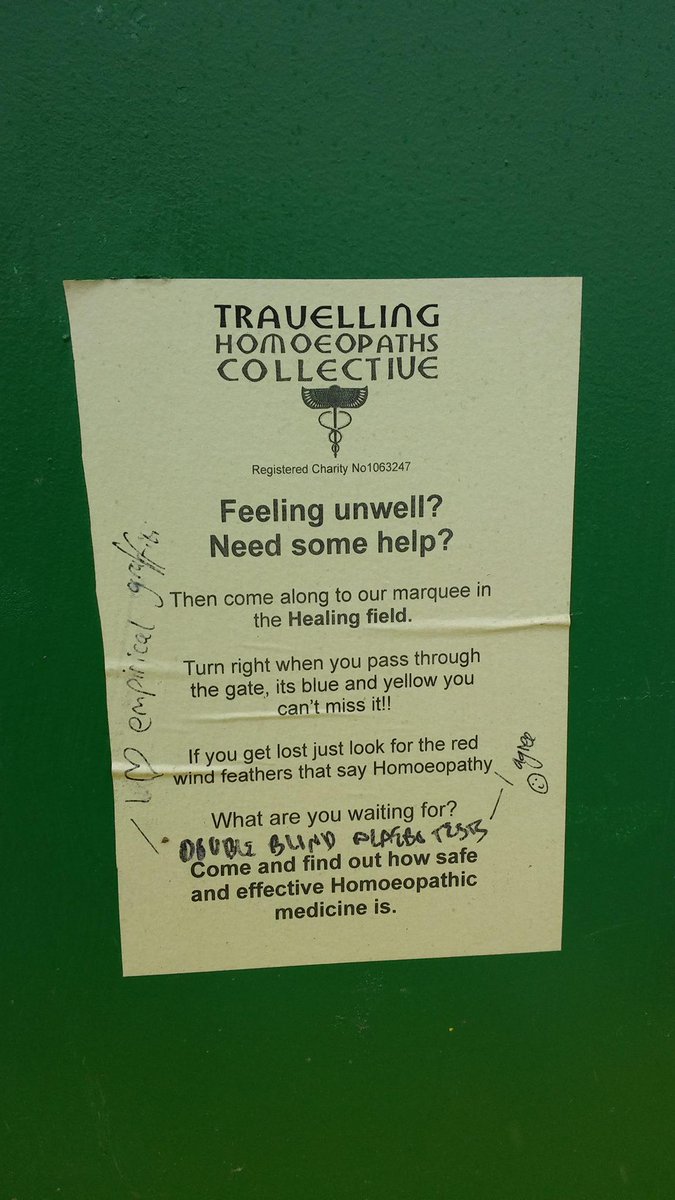 TRAVELLING
HOMOEOPATHS
COLLECTIVE
Registered Charity No1063247
Feeling unwell?
Need some help?
Then come along to our marquee in
the Healing field.
Turn right when you pass through
the gate, its blue and yellow you
can't miss it!!
If you get lost just look for the red
wind feathers that say Homoeopathy
What are you waiting for?
DOUBLE BLIND PLACEBO TESTS
Come and find out how safe
and effective Homoeopathic
medicine is.
I ♡ empirical graffiti
I agree ☺